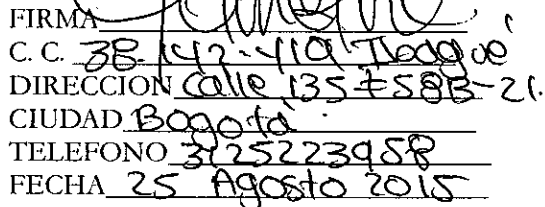 FIRMA
C. C. 38.142.419 Ibagué
DIRECCION Calle 135 #58B-21.
CIUDAD Bogotá.
TELEFONO 3125223958
FECHA 25 Agosto 2015